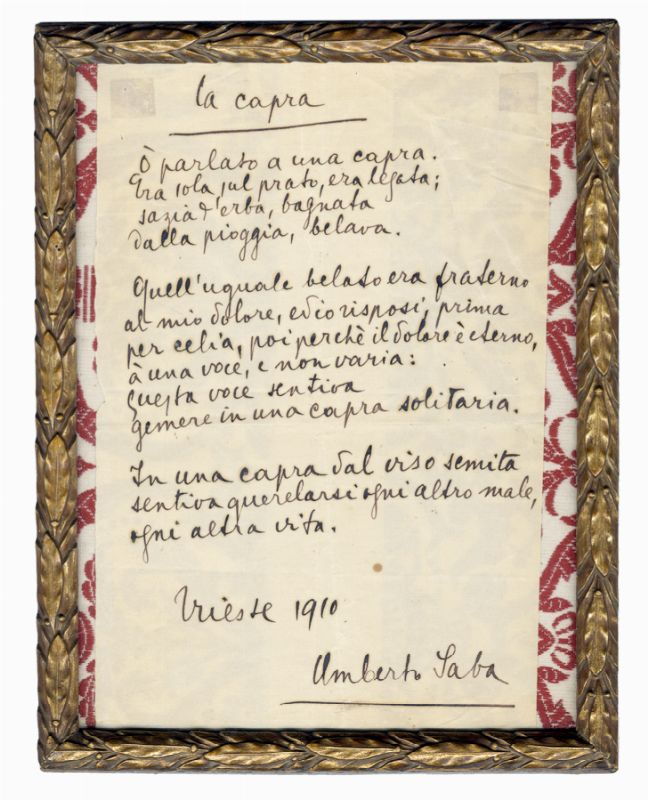 La capra
Ò parlato a una capra.
Era sola sul prato, era legata;
sazia d'erba, bagnata
dalla pioggia, belava.
Quell'uguale belato era fraterno
al mio dolore, ed io risposi, prima
per celia, poi perchè il dolore è eterno,
à una voce, e non varia:
Questa voce sentiva
gemere in una capra solitaria.
In una capra dal viso semita
sentiva querelarsi ogni altro male,
ogni altra vita.
Trieste 1910
Umberto Saba